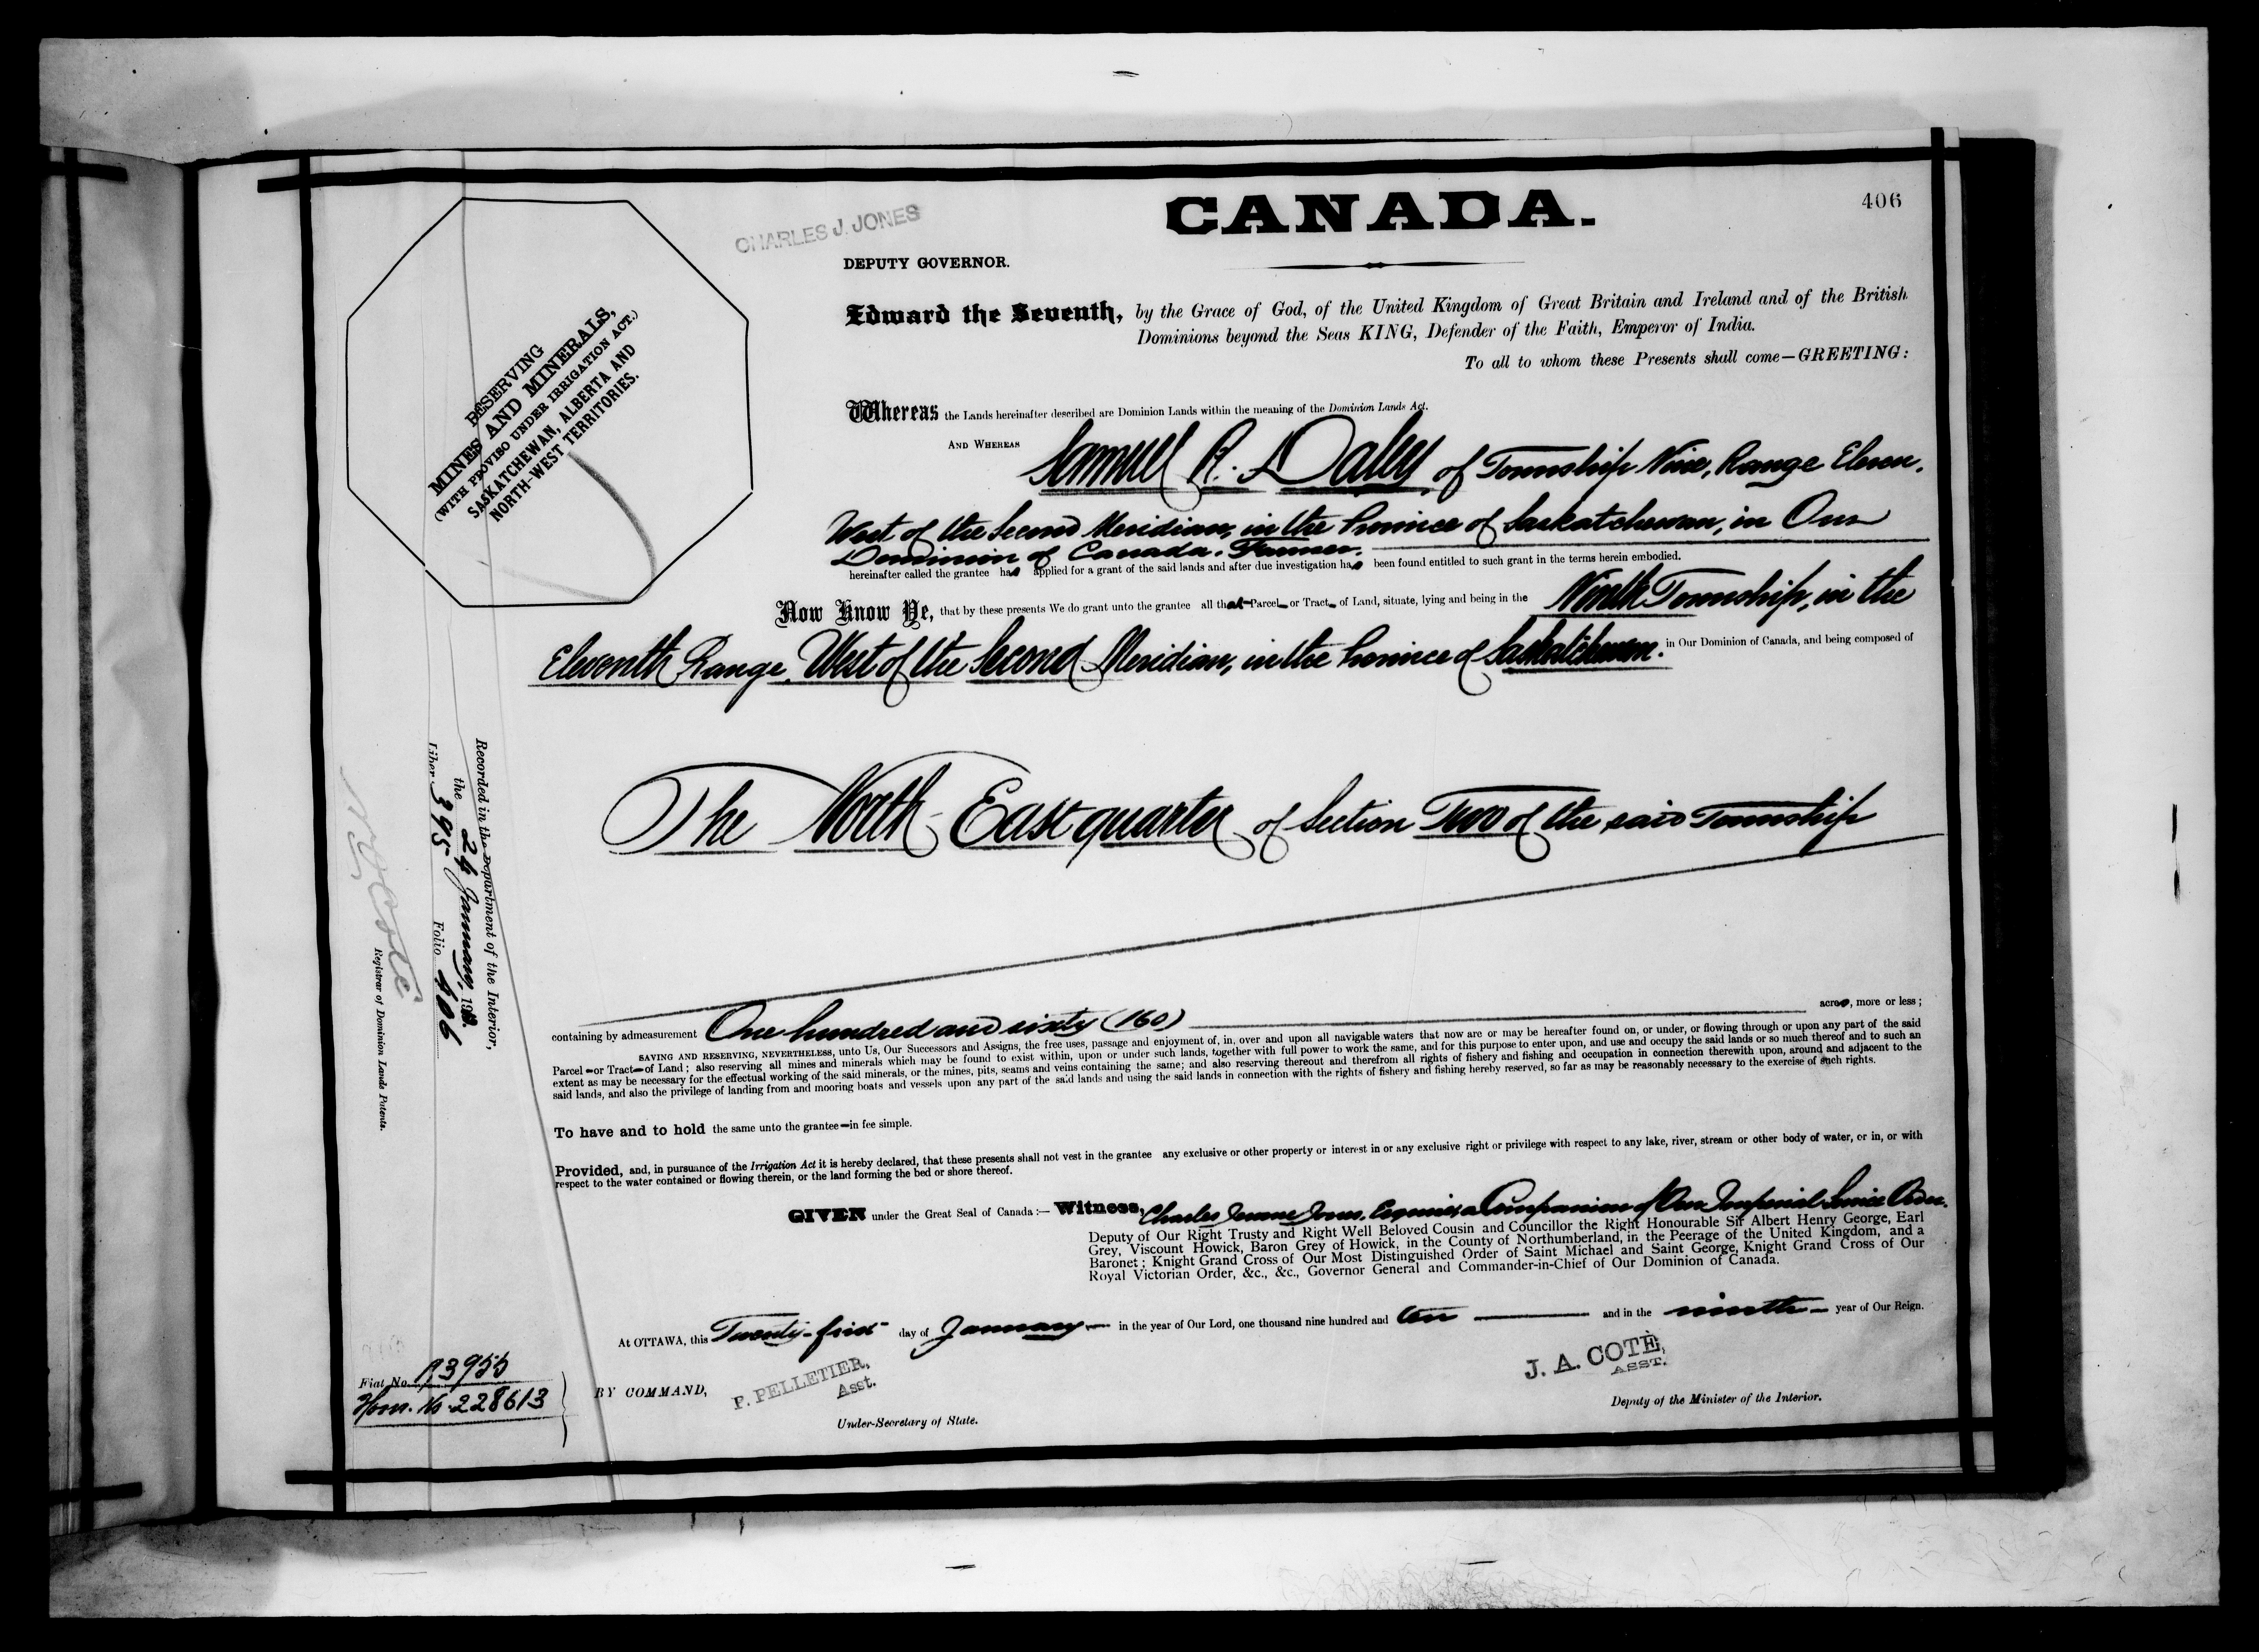 406
CANADA.
CHARLES J. JONES
DEPUTY GOVERNOR.
RESERVING
MINES AND MINERALS,
(WITH PROVISO UNDER IRRIGATION ACT.)
SASKATCHEWAN, ALBERTA AND
NORTH-WEST TERRITORIES.
Edward the Seventh, by the Grace of God, of the United Kingdom of Great Britain and Ireland and of the British
Dominions beyond the Seas KING, Defender of the Faith, Emperor of India.
To all to whom these Presents shall come—GREETING:
Whereas the Lands hereinafter described are Dominion Lands within the meaning of the Dominion Lands Act.
AND WHEREAS Samuel R. Daley, of Township Nine, Range Eleven,
West of the Second Meridian, in the Province of Saskatchewan, in Our
Dominion of Canada. Farmer.
hereinafter called the grantee has applied for a grant of the said lands and after due investigation has been found entitled to such grant in the terms herein embodied.
Now Know Ye, that by these presents We do grant unto the grantee all that Parcel or Tract of Land, situate, lying and being in the Ninth Township, in the
Eleventh Range, West of the Second Meridian, in the Province of Saskatchewan. in Our Dominion of Canada, and being composed of
The North East quarter of Section Two of the said Township
containing by admeasurement One hundred and sixty (160) acres, more or less;
SAVING AND RESERVING, NEVERTHELESS, unto Us, Our Successors and Assigns, the free uses, passage and enjoyment of, in, over and upon all navigable waters that now are or may be hereafter found on, or under, or flowing through or upon any part of the said
Parcel or Tract of Land; also reserving all mines and minerals which may be found to exist within, upon or under such lands, together with full power to work the same, and for this purpose to enter upon, and use and occupy the said lands or so much thereof and to such an
extent as may be necessary for the effectual working of the said minerals, or the mines, pits, seams and veins containing the same; and also reserving thereout and therefrom all rights of fishery and fishing and occupation in connection therewith upon, around and adjacent to the
said lands, and also the privilege of landing from and mooring boats and vessels upon any part of the said lands and using the said lands in connection with the rights of fishery and fishing hereby reserved, so far as may be reasonably necessary to the exercise of such rights.
To have and to hold the same unto the grantee in fee simple.
Provided, and, in pursuance of the Irrigation Act it is hereby declared, that these presents shall not vest in the grantee any exclusive or other property or interest in or any exclusive right or privilege with respect to any lake, river, stream or other body of water, or in, or with
respect to the water contained or flowing therein, or the land forming the bed or shore thereof.
GIVEN under the Great Seal of Canada:— Witness, Charles Jones, Esquire, a Companion of Our Imperial Service Order.
Deputy of Our Right Trusty and Right Well Beloved Cousin and Councillor the Right Honourable Sir Albert Henry George, Earl
Grey, Viscount Howick, Baron Grey of Howick, in the County of Northumberland, in the Peerage of the United Kingdom, and a
Baronet; Knight Grand Cross of Our Most Distinguished Order of Saint Michael and Saint George, Knight Grand Cross of Our
Royal Victorian Order, &c., &c., Governor General and Commander-in-Chief of Our Dominion of Canada.
At OTTAWA, this Twenty-first day of January in the year of Our Lord, one thousand nine hundred and ten and in the ninth year of Our Reign.
BY COMMAND,
P. PELLETIER,
Asst.
Under-Secretary of State.
J. A. COTÉ,
ASST.
Deputy of the Minister of the Interior.
Recorded in the Department of the Interior,
the 24 January, 19
Liber 395 Folio 406
N. O. Coté
Registrar of Dominion Lands Patents.
Fiat No. 93955
Hom. No. 228613